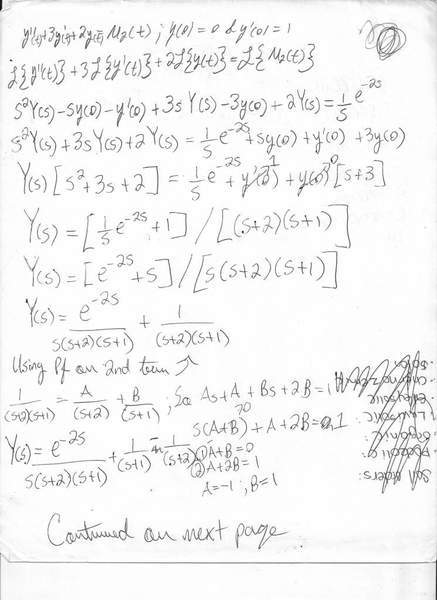 y''(t)+3y'(t)+2y(t)= u₂(t) ; y(0)=0 & y'(0)=1
ℒ{y''(t)}+3ℒ{y'(t)}+2ℒ{y(t)}=ℒ{u₂(t)}
s²Y(s)-sy(0)-y'(0)+3sY(s)-3y(0)+2Y(s)=1/s e^-2s
s²Y(s)+3sY(s)+2Y(s)=1/s e^-2s+sy(0)+y'(0)+3y(0)
Y(s)[s²+3s+2]=1/s e^-2s+y'(0)1+y(0)0[s+3]
Y(s)=[1/s e^-2s+1]/[(s+2)(s+1)]
Y(s)=[e^-2s+s]/[s(s+2)(s+1)]
Y(s)=e^-2s/s(s+2)(s+1) + 1/(s+2)(s+1)
Using Pf on 2nd term ↗
1/(s+2)(s+1) = A/(s+2) + B/(s+1) ; So As+A+Bs+2B=1
s(A+B)0+A+2B=1
Y(s)=e^-2s/s(s+2)(s+1) + 1/(s+1) - 1/(s+2)
① A+B=0
② A+2B=1
A=-1 ; B=1
Continued on next page
orders: